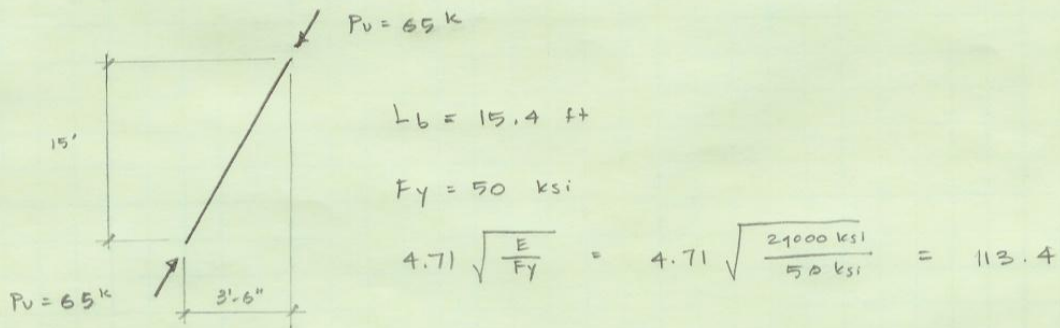 Pu = 65 k
15'
Lb = 15.4 ft
Fy = 50 ksi
4.71 √(E/Fy) = 4.71 √(29000 ksi/50 ksi) = 113.4
Pu = 65 k
3'-6"